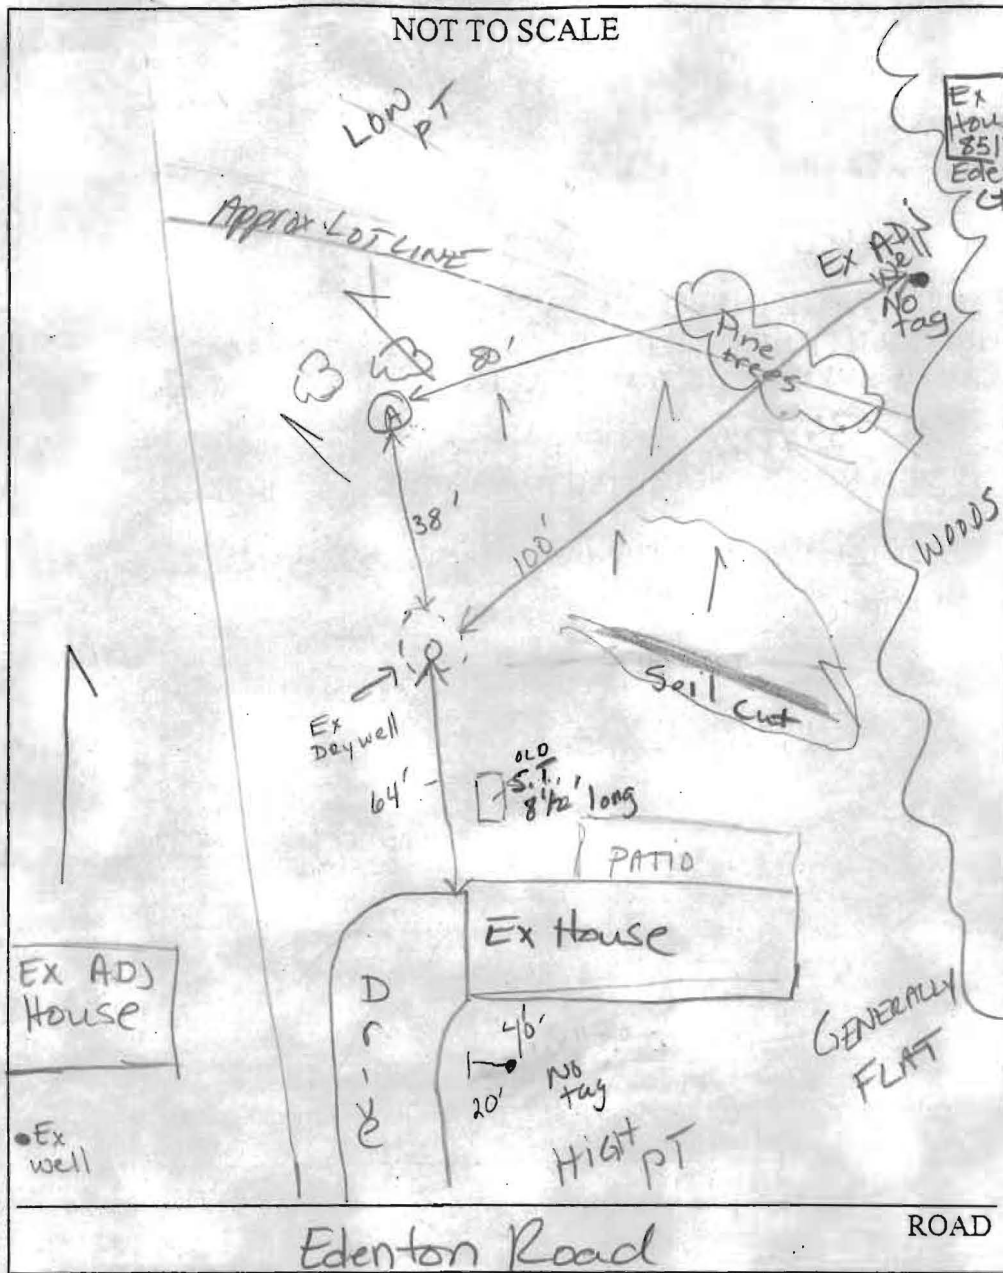 NOT TO SCALE
LOW
PT
Ex
Hou
851
Ede
Approx LOT LINE
Ex ADJ
We
No
tag
Pine
trees
80'
A
38'
100'
WOODS
Soil
Cut
Ex
Drywell
64'
OLD
S.T.
8 1/2' long
PATIO
Ex House
Ex ADJ
House
Drive
20'
No
tag
GENERALLY
FLAT
HIGH
PT
Ex
well
ROAD
Edenton Road